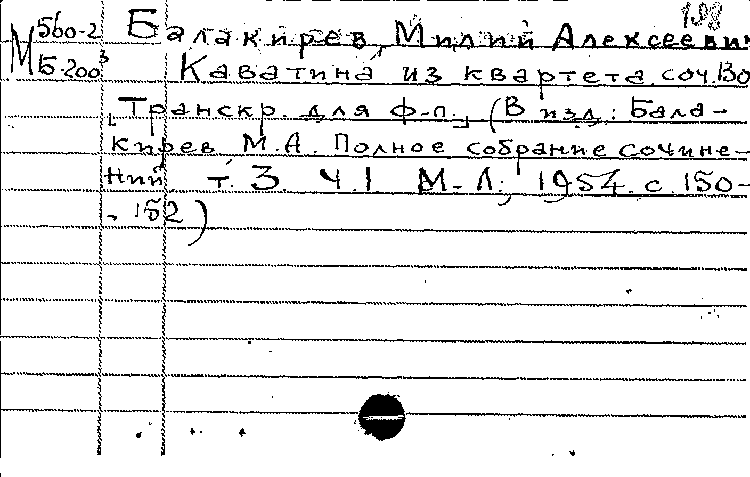 198
М 560-2 Балакирев, Милий Алексеевич
Б-200³ Каватина из квартета соч. 130
[Транскр. для ф-п.] (В изд.: Бала-
кирев М.А. Полное собрание сочине-
ний т. 3. ч. I М.-Л., 1954. с. 150-
-152)